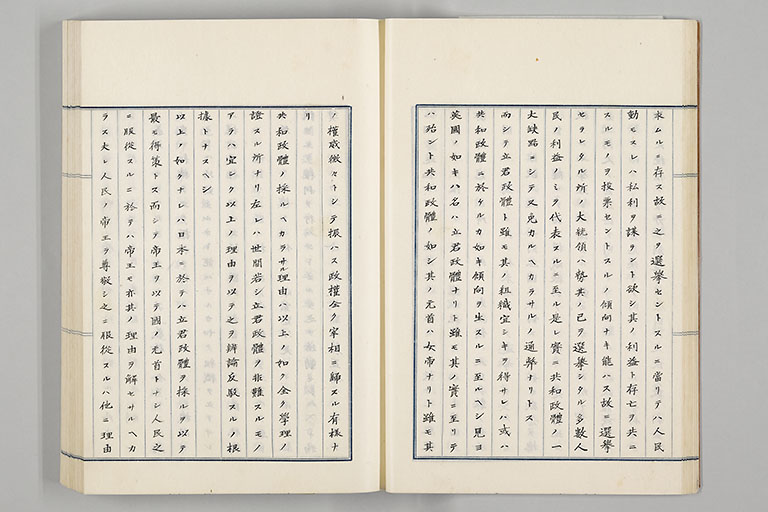 求ムルニ存ス故ニ之ヲ選擧セントスルニ當リテハ人民
動モスレハ私利ヲ謀ラント欲シ其ノ利益ト存亡ヲ共ニ
スルモノヲ投票セントスルノ傾向ナキ能ハス故ニ選擧
セラレタル所ノ大統領ハ勢其ノ己ヲ選擧シタル多數人
民ノ利益ノミヲ代表スルニ至ル是レ實ニ共和政體ノ一
大缺點ニシテ又免カルヘカラサルノ通弊ナリトス
而シテ立君政體ト雖モ其ノ組織宜シキヲ得サレハ或ハ
共和政體ニ於ケルカ如キ傾向ヲ生スルニ至ルヘシ見ヨ
英國ノ如キハ名ハ立君政體ナリト雖モ其ノ實ニ至リテ
ハ殆ント共和政體ノ如シ其ノ元首ハ女帝ナリト雖モ其
ノ權威微々トシテ振ハス政權全ク宰相ニ歸スル有樣ナ
リ
共和政體ノ採ルヘカラサル理由ハ以上ノ如ク全ク學理ノ
證スル所ナリ左レハ世間若シ立君政體ヲ非難スルモノ
アラハ宜シク以上ノ理由ヲ以テ之ヲ辨論反駁スルノ根
據トナスヘシ
以上ノ如クナレハ日本ニ於テハ立君政體ヲ採ルヲ以テ
最モ得策トス而シテ帝王ヲ以テ國ノ元首トナシ人民之
ニ服從スルニ於テハ帝王モ亦其ノ理由ヲ解セサルヘカ
ラス夫レ人民ノ帝王ヲ尊敬シ之ニ服從スルハ他ニ理由